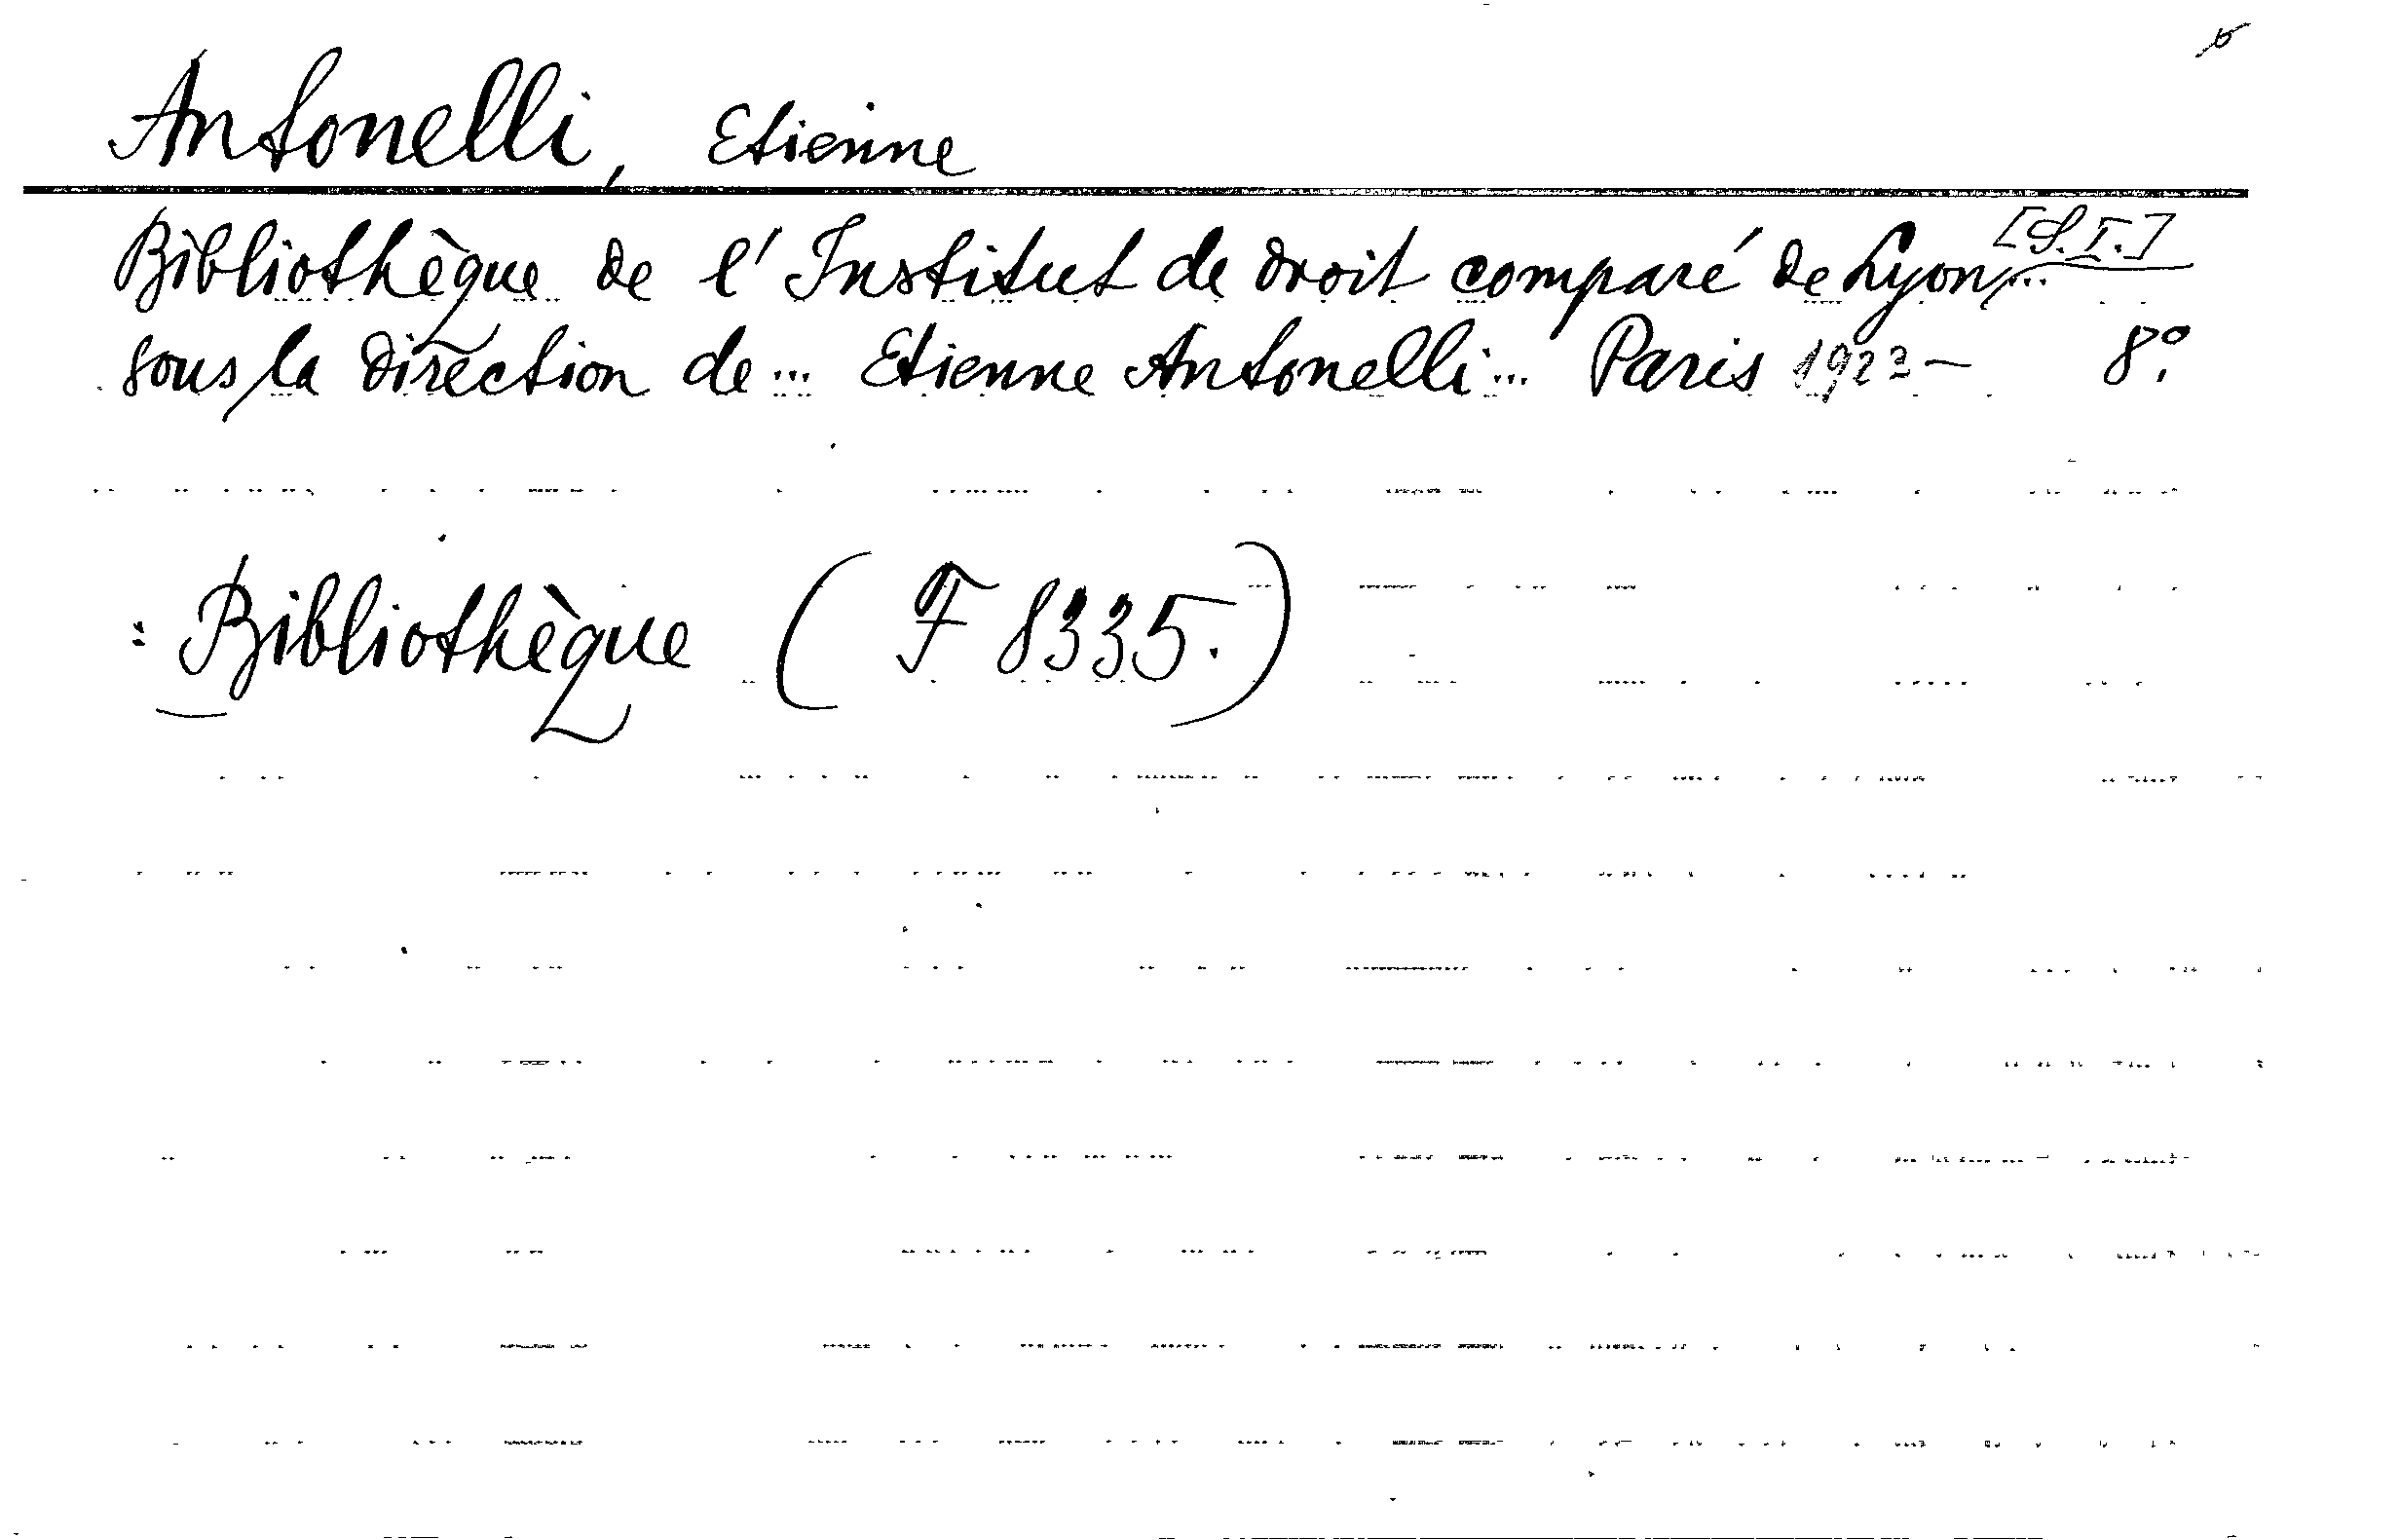 Antonelli, Etienne
Bibliothèque de l'Institut de droit comparé de Lyon, ... [S.I.]
sous la direction de ... Etienne Antonelli ... Paris 1923- 8º.
: Bibliothèque (F 8335.)